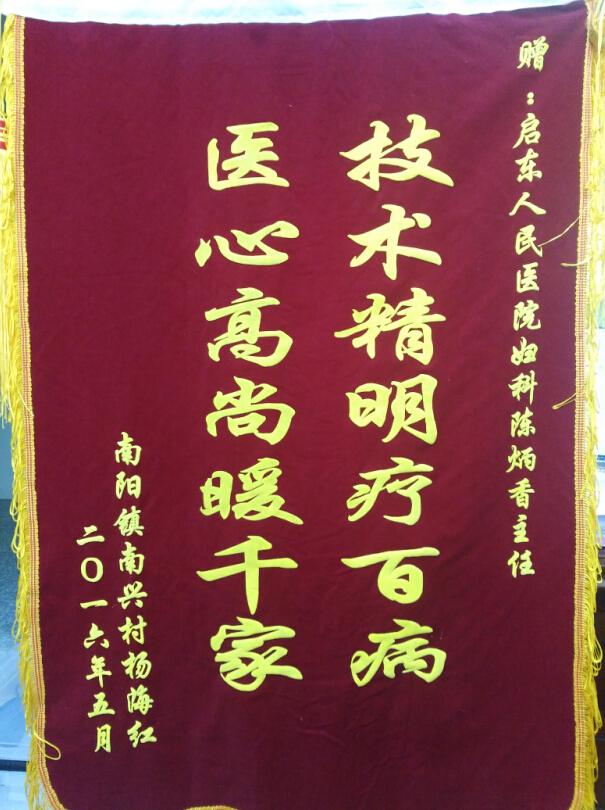 赠：启东人民医院妇科陈炳香主任
技术精明疗百病
医心高尚暖千家
南阳镇南兴村杨海红
二〇一六年五月